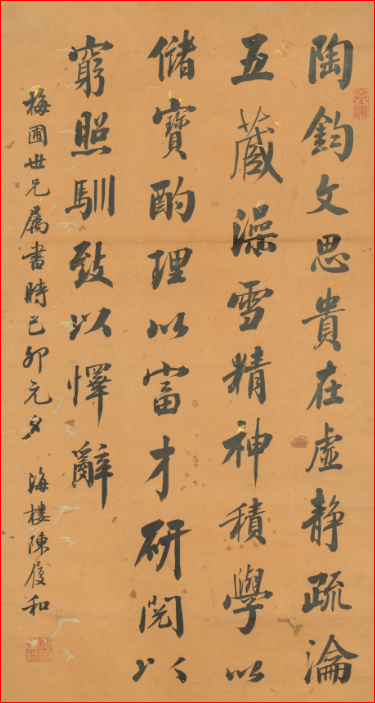 陶鈞文思貴在虛靜疏瀹
五藏澡雪精神積學以
儲寶酌理以富才研閱以
窮照馴致以懌辭
梅圃世兄屬書時己卯元夕 海樓陳履和